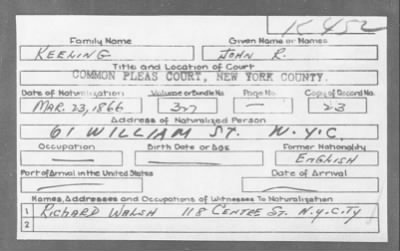 K 452
Family Name Given Name or Names
KEELING JOHN R.
Title and Location of Court
COMMON PLEAS COURT, NEW YORK COUNTY.
Date of Naturalization Volume or Bundle No. Page No. Copy of Record No.
MAR. 23, 1866 327 — 23
Address of Naturalized Person
61 WILLIAM ST. N.Y.C.
Occupation Birth Date or Age Former Nationality
— — ENGLISH
Port of Arrival in the United States Date of Arrival
— —
Names, Addresses and Occupations of Witnesses To Naturalization
1 RICHARD WALSH 118 CENTRE ST. N.Y.CITY
2